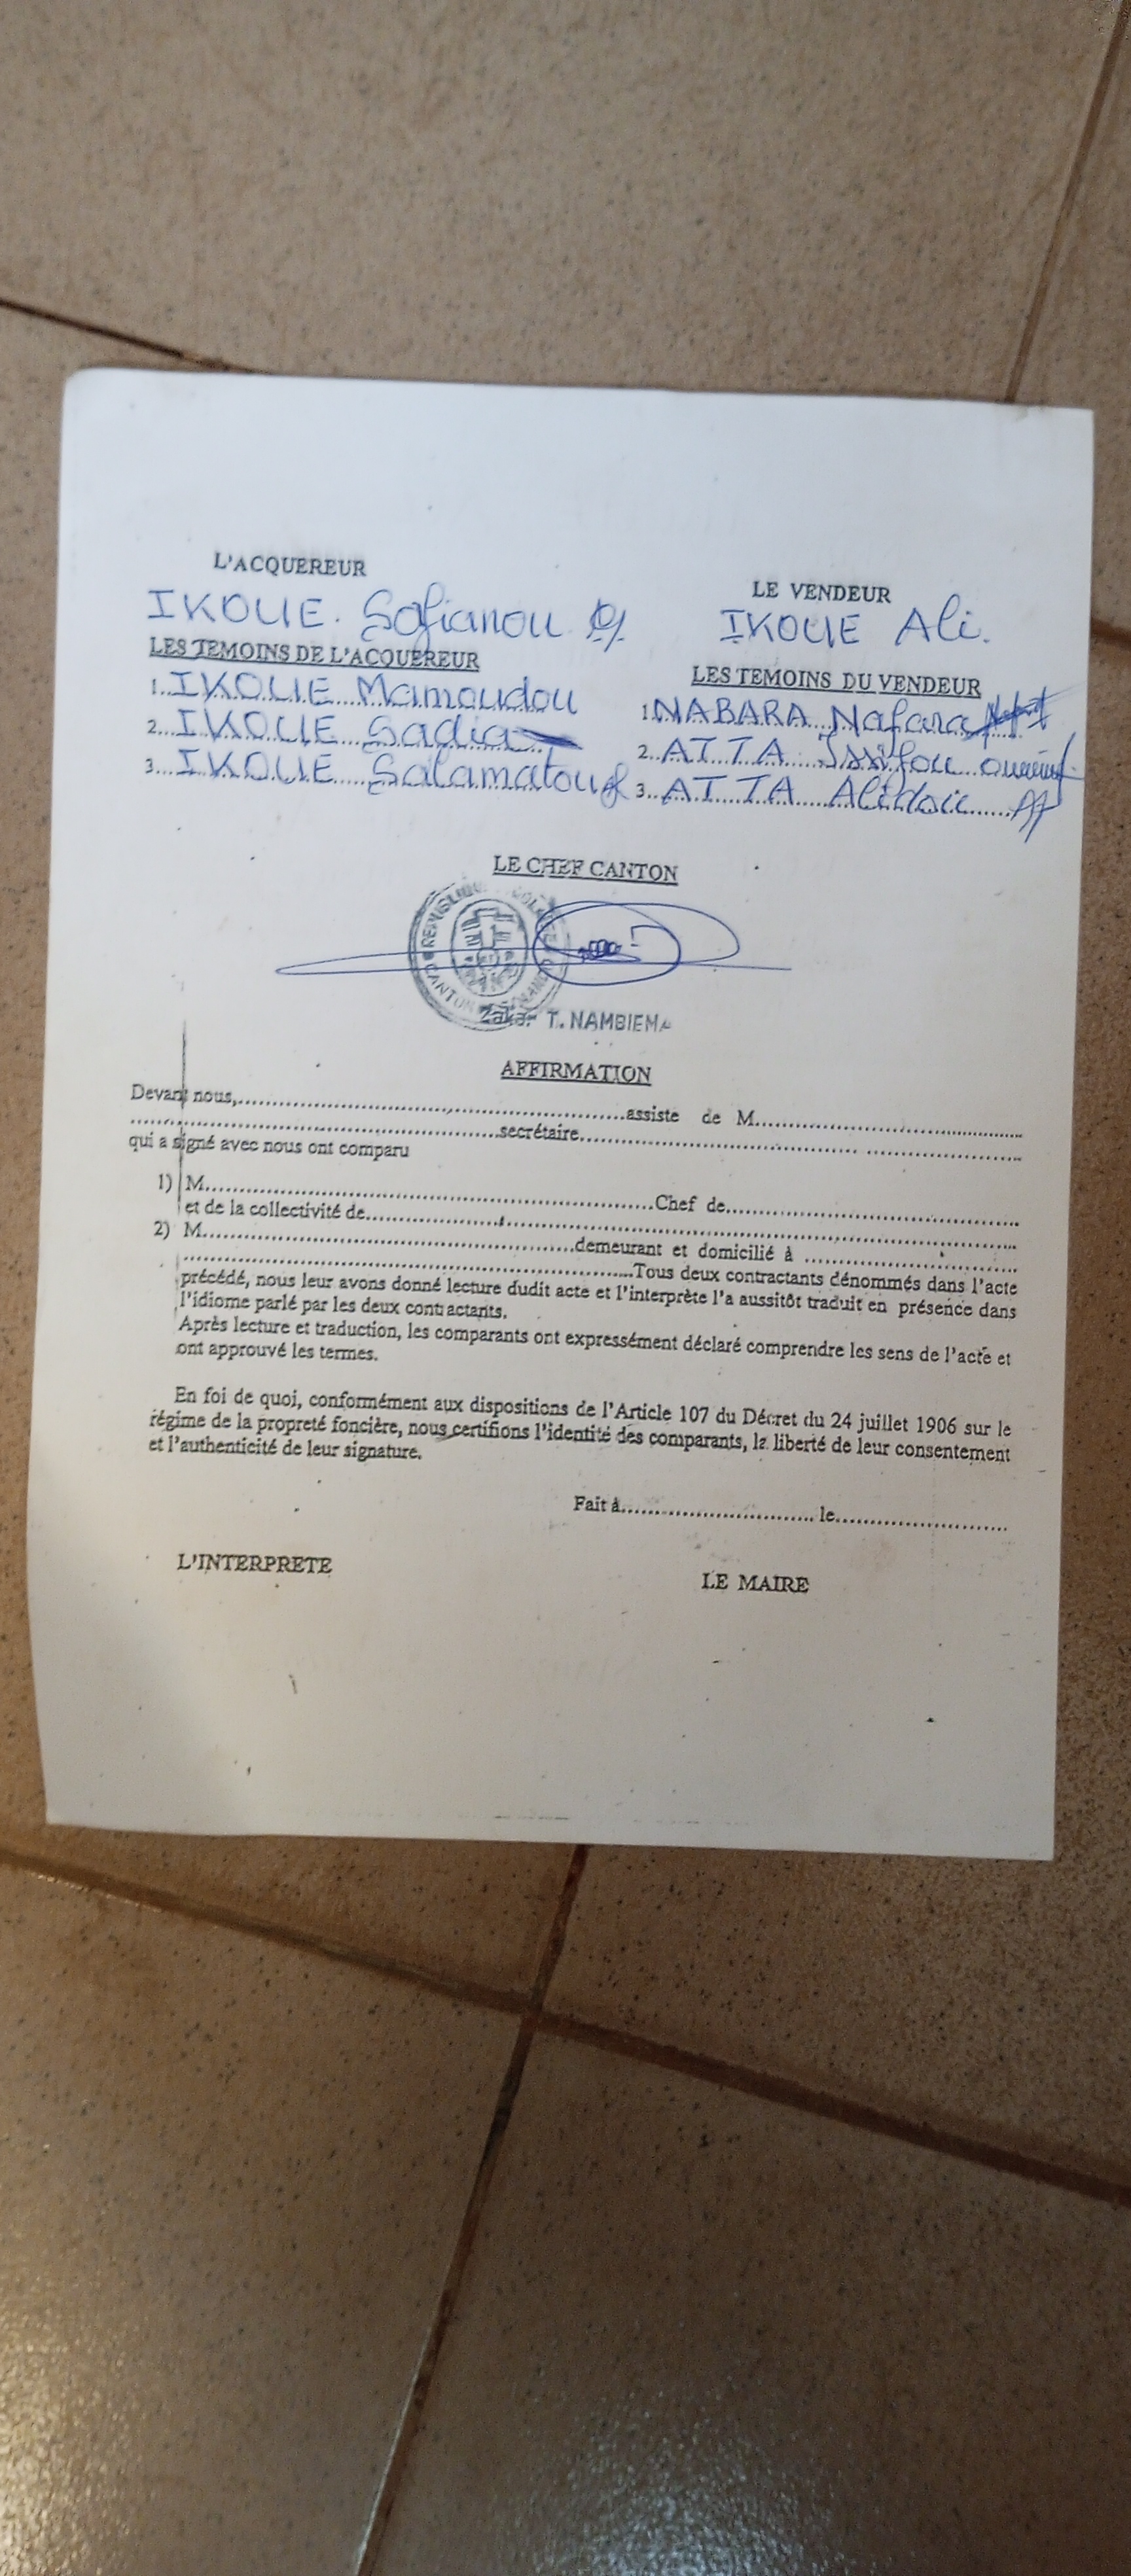 L'ACQUEREUR
IKOUE. Sofianou
LE VENDEUR
IKOUE Ali.
LES TEMOINS DE L'ACQUEREUR
1..IKOUE Mamoudou
2...IKOUE Sadia
3...IKOUE Salamatou
LES TEMOINS DU VENDEUR
1.NABARA Nafara
2..ATTA Issifou
3..ATTA Alidou
LE CHEF CANTON
REPUBLIQUE
CANTON
T. NAMBIEMA
AFFIRMATION
Devant nous,..............................assiste de M..............................
..............................secrétaire..............................
qui a signé avec nous ont comparu
1) M..............................Chef de..............................
et de la collectivité de..............................
2) M..............................demeurant et domicilié à ..............................
..............................Tous deux contractants dénommés dans l'acte
précédé, nous leur avons donné lecture dudit acte et l'interprète l'a aussitôt traduit en présence dans
l'idiome parlé par les deux contractants.
Après lecture et traduction, les comparants ont expressément déclaré comprendre les sens de l'acte et
ont approuvé les termes.
En foi de quoi, conformément aux dispositions de l'Article 107 du Décret du 24 juillet 1906 sur le
régime de la propreté foncière, nous certifions l'identité des comparants, la liberté de leur consentement
et l'authenticité de leur signature.
Fait à.............................. le..............................
L'INTERPRETE
LE MAIRE